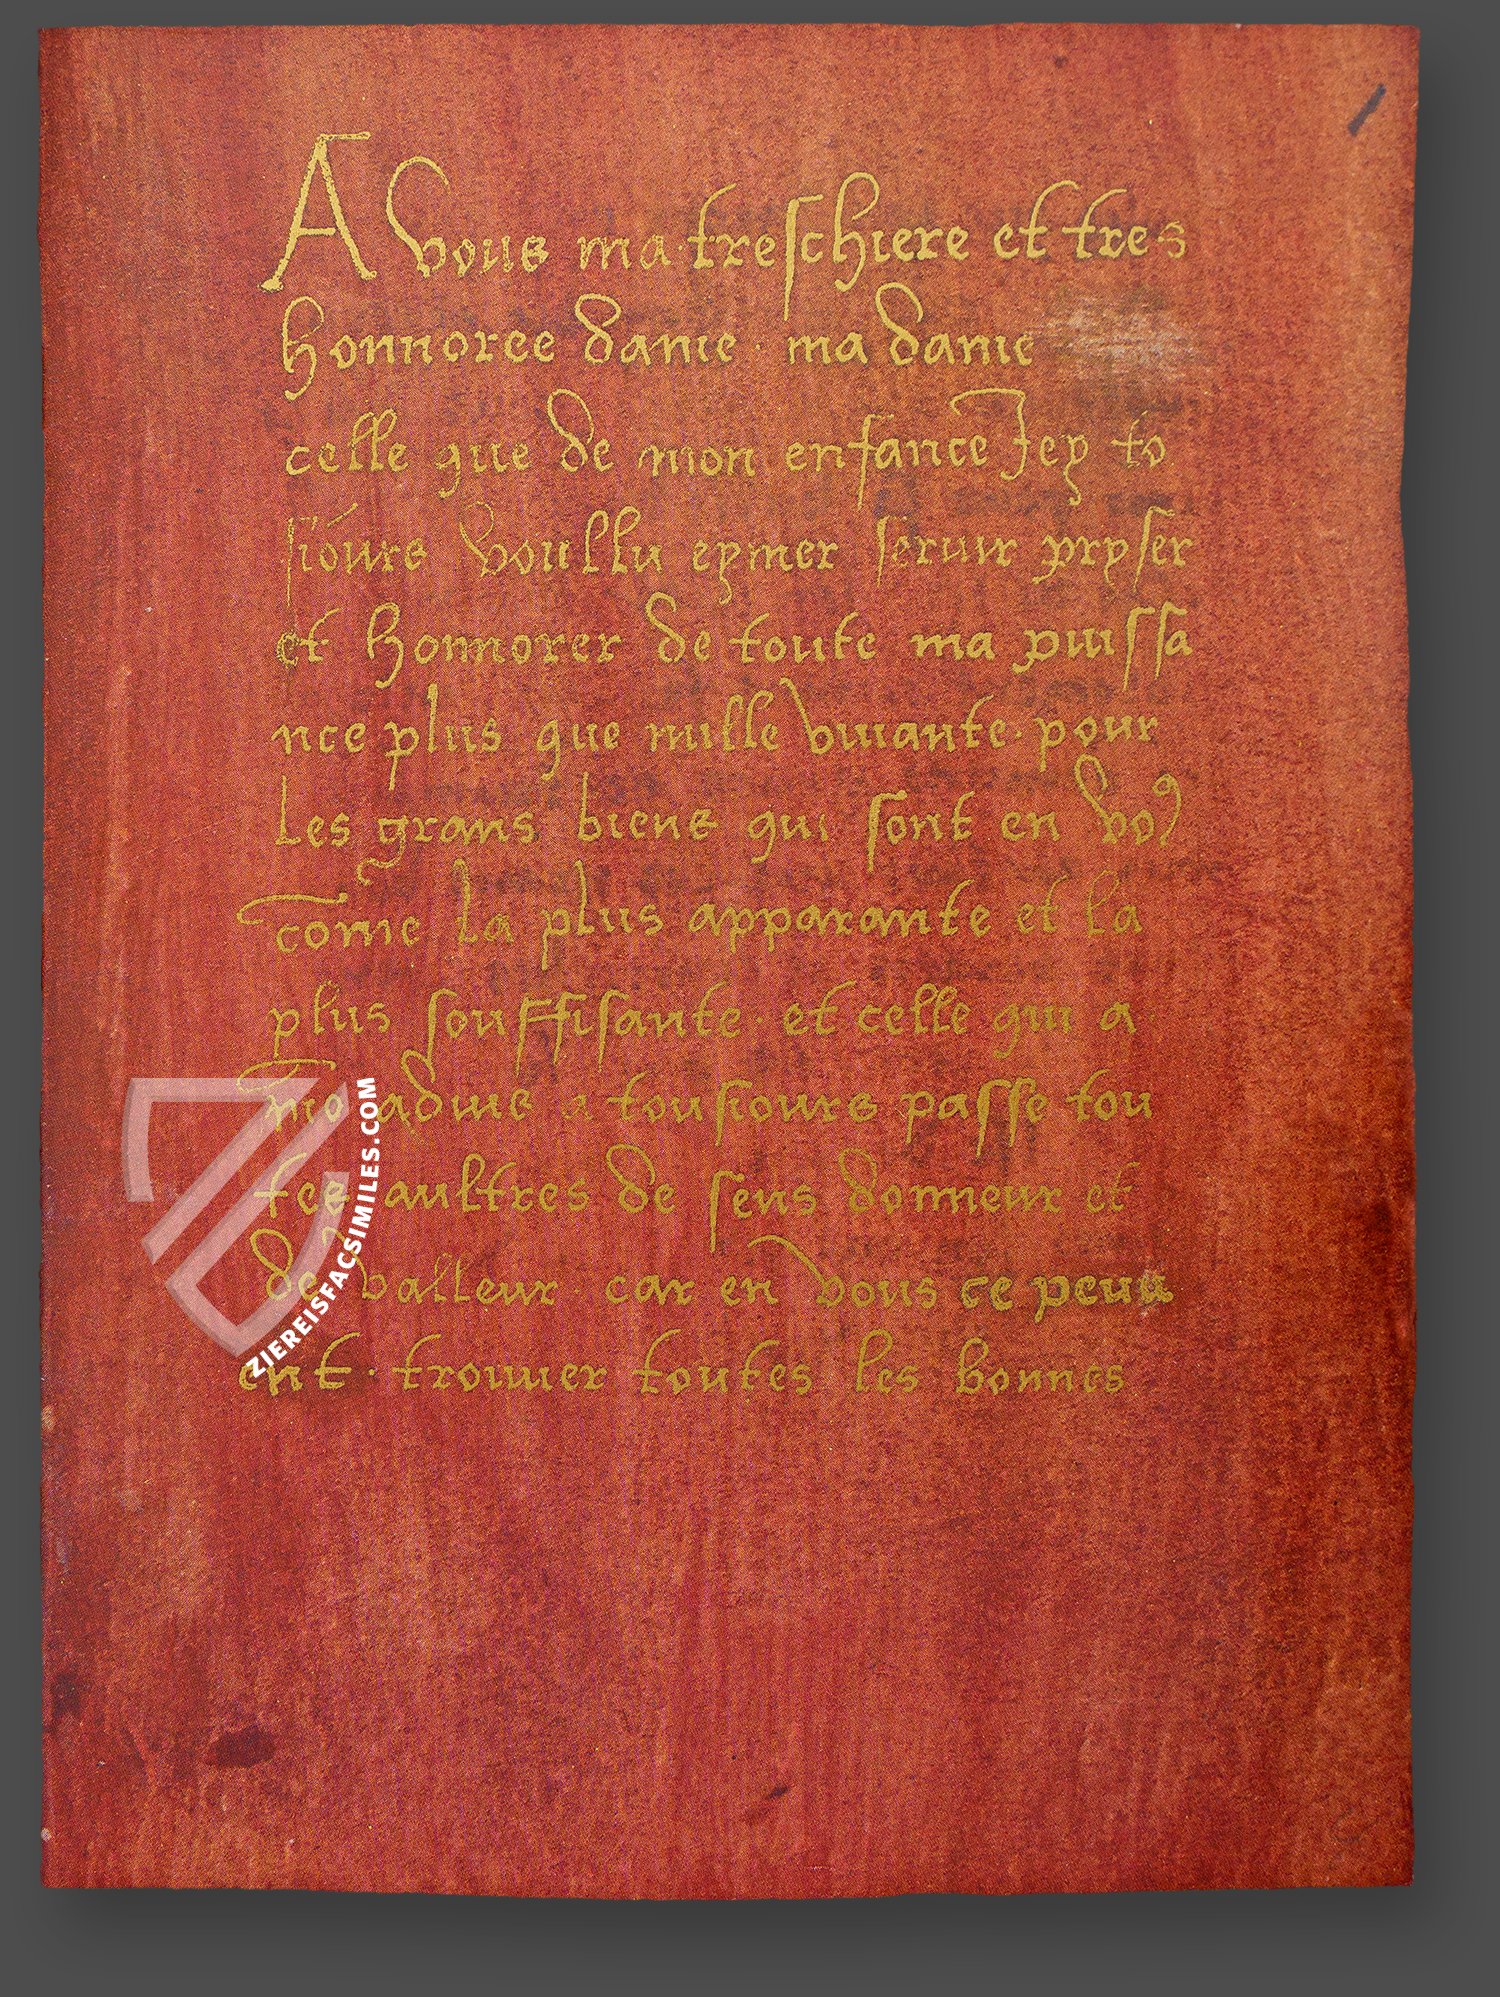 A vous ma treschiere et tres
honnoree dame · ma dame
celle que de mon enfance Jey to
siours voullu eymer seruir pryser
et honnorer de toute ma puissa
nce plus que mille viuante · pour
Les grans biens qui sont en vo9
cōme la plus apparante et la
plus souffisante · et celle qui a
mō aduis a tousiours passe tou
tes aultres de sens donneur et
de valleur · car en vous ce peuu
ent · trouuer toutes les bonnes
ZIEREISFACSIMILES.COM